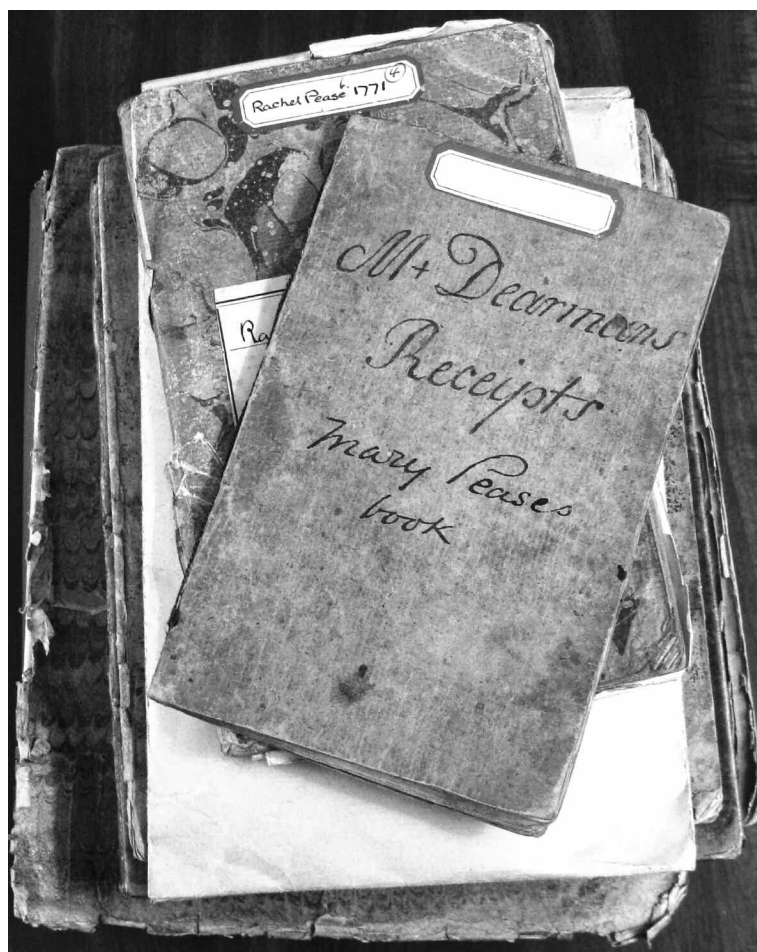 Rachel Pease 1771 4
Ra
M+ Dearmans
Receipts
Mary Peases
book